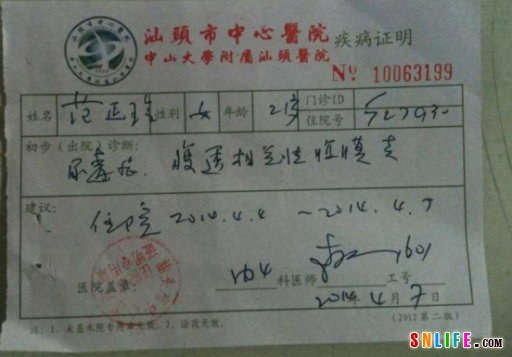 汕頭市中心醫院 疾病证明
中山大學附屬汕頭醫院
№ 10063199
姓名 范 性别 女 年龄 门诊ID
住院号
初步(出院)诊断:
尿毒症. 腹透相关性腹膜炎
建议:
住院 2014.4.4 ~ 2014.4.7
医院盖章: 164 科医师 1601 工号
2014年4月7日
注:1、未盖本院专用章无效。2、涂改无效。 (2012第二版)
SNLIFE.com